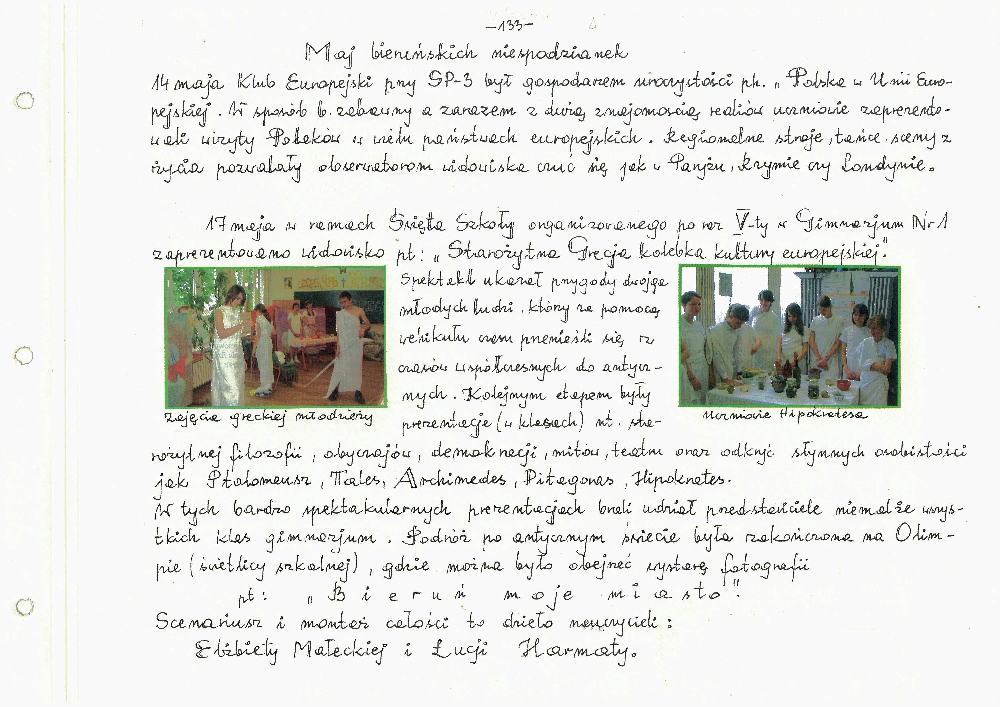 -133-
Maj bieruńskich niespodzianek
14 maja Klub Europejski przy SP-3 był gospodarzem uroczystości ph. „Polska w Unii Euro-
pejskiej. W sposób b. zabawny a zarazem z dużą znajomością realiów uczniowie zaprezento-
wali wizyty Polaków w wielu państwach europejskich. Regionalne stroje, tańce, sceny z
życia pozwalały obserwatorom widowiska czuć się jak w Paryżu, Rzymie czy Londynie.
17 maja w ramach Święta Szkoły organizowanego po raz V-ty w Gimnazjum Nr 1
zaprezentowano widowisko pt: „Starożytna Grecja kolebką kultury europejskiej".
Spektakl ukazał przygody dwojga
młodych ludzi, który za pomocą
wehikułu czasu przenieśli się z
czasów współczesnych do antycz-
nych. Kolejnym etapem były
prezentacje (w klasach) nt. sta-
Zajęcia greckiej młodzieży
Uczniowie Hipokratesa
rożytnej filozofii, obyczajów, demokracji, mitów, teatru oraz odkryć słynnych osobistości
jak Ptolomeusz, Tales, Archimedes, Pitagoras, Hipokrates.
W tych bardzo spektakularnych prezentacjach brali udział przedstawiciele niemalże wszys-
tkich klas gimnazjum. Podróż po antycznym świecie była zakończona na Olim-
pie (świetlicy szkolnej), gdzie można było obejrzeć wystawę fotografii
pt: „Bieruń moje miasto".
Scenariusz i montaż całości to dzieło nauczycieli:
Elżbiety Małeckiej i Łucji Harmaty.